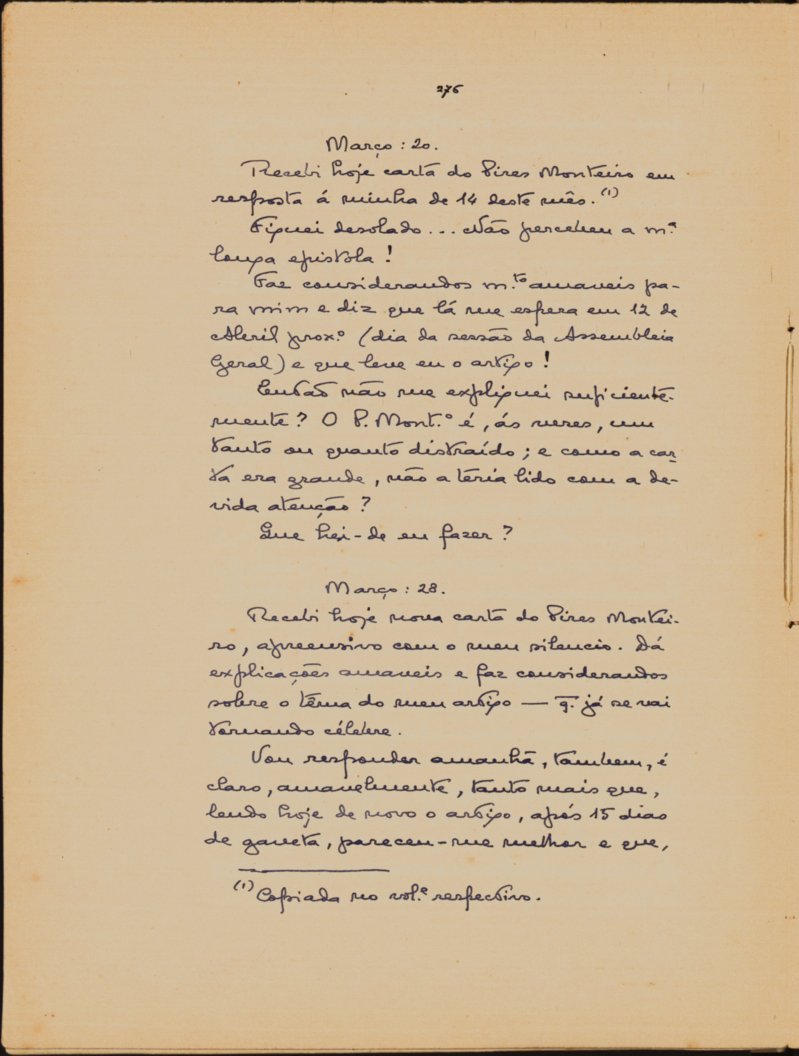 276
Março : 20.
Recebi hoje carta do Pires Monteiro em
resposta á minha de 14 deste mês. (1)
Fiquei desolado... Não percebeu a m.ª
longa epistola !
Faz considerandos m.to amaveis pa-
ra mim e diz que lá me espera em 12 de
Abril prox.º (dia da sessão da Assembleia
Geral) e que leve eu o artigo !
Então não me expliquei suficiente-
mente ? O P. Mont.º é, ás vezes, um
tanto ou quanto distraído ; e como a car-
ta era grande, não a teria lido com a de-
vida atenção ?
Que hei-de eu fazer ?
Março : 28.
Recebi hoje nova carta do Pires Montei-
ro, apreensivo com o meu silencio. Dá
explicações amaveis e faz considerandos
sobre o têma do meu artigo — q. já se vai
tornando célebre.
Vou responder amanhã, tambem, é
claro, amavelmente, tanto mais que,
lendo hoje de novo o artigo, após 15 dias
de gaveta, pareceu-me melhor e que,
(1) Copiada no vol.e respectivo.